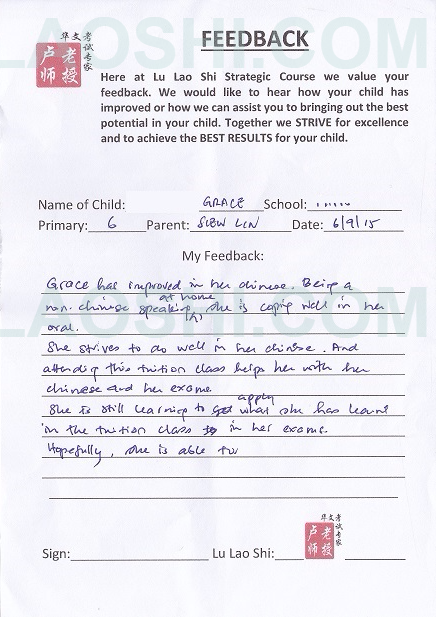 LAOSHI.COM
华文考试专家
卢老师授
FEEDBACK
Here at Lu Lao Shi Strategic Course we value your
feedback. We would like to hear how your child has
improved or how we can assist you to bringing out the best
potential in your child. Together we STRIVE for excellence
and to achieve the BEST RESULTS for your child.
Name of Child: GRACE School:
Primary: 6 Parent: SIEW LIN Date: 6/9/15
My Feedback:
Grace has improved in her chinese. Being a
non-chinese speaking at home, she is coping well in her
oral.
LAOSHI.COM
She strives to do well in her chinese. And
attending this tuition class helps her with her
chinese and her exams
She is still learning to apply what she has learnt
in the tuition class in her exams.
Hopefully, she is able to
Sign: Lu Lao Shi:
华文考试专家
卢老师授